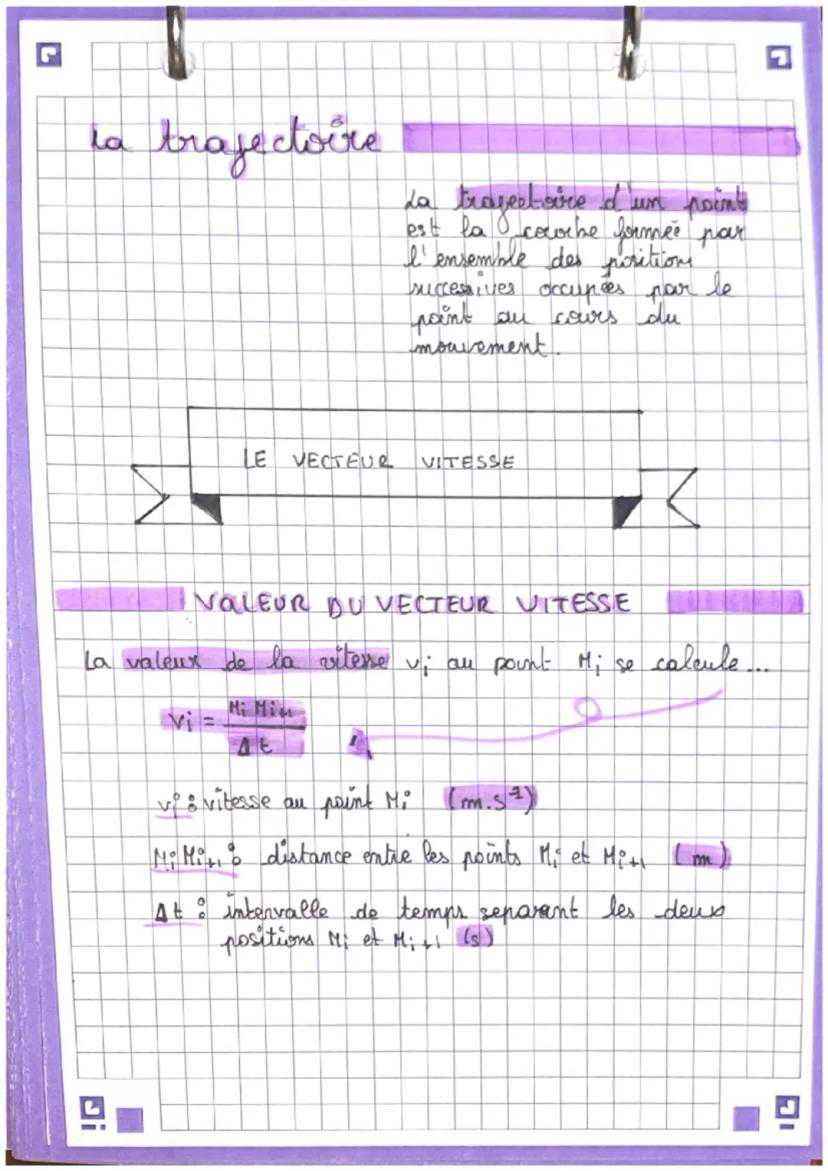 La trajectoire
La trajectoire d'un point
est la courbe formée par
l'ensemble des positions
successives occupées par le
point au cours du
mouvement.
LE VECTEUR VITESSE
VALEUR DU VECTEUR VITESSE
La valeur de la vitesse vi au point Mi se calcule...
vi = Mi Mi+1 / Δt
vi : vitesse au point Mi (m.s⁻¹)
Mi Mi+1 : distance entre les points Mi et Mi+1 (m)
Δt : intervalle de temps separant les deux
positions Mi et Mi+1 (s)